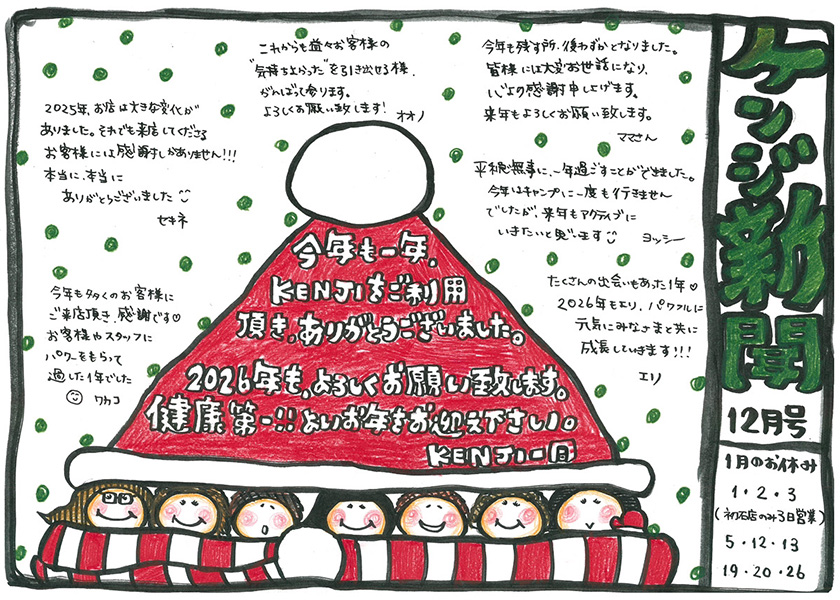 ケンジ新聞
12月号
1月のお休み
1・2・3
(初石店のみ3日営業)
5・12・13
19・20・26
今年も残す所、後わずかとなりました。
皆様には大変お世話になり、
心より感謝申し上げます。
来年もよろしくお願い致します。
ママさん
これからも益々お客様の
“気持ちよかった”を引き出せる様、
がんばって参ります。
よろしくお願い致します!
オオノ
2025年、お店は大きな変化が
ありました。それでも来店してくださる
お客様には感謝しかありません!!!
本当に、本当に
ありがとうございました
セキネ
平和で無事に、一年過ごすことができました。
今年はキャンプに一度も行きません
でしたが、来年もアクティブに
いきたいと思います
ヨッシー
たくさんの出会いもあった1年♡
2026年もより、パワフルに
元気にみなさまと共に
成長していきます!!!
エリ
今年も多くのお客様に
ご来店頂き、感謝です♡
お客様やスタッフに
パワーをもらって
過した1年でした
ワカコ
今年も一年、
KENJIをご利用
頂き、ありがとうございました。
2026年も、よろしくお願い致します。
健康第一!!よいお年をお迎え下さい。
KENJI一同